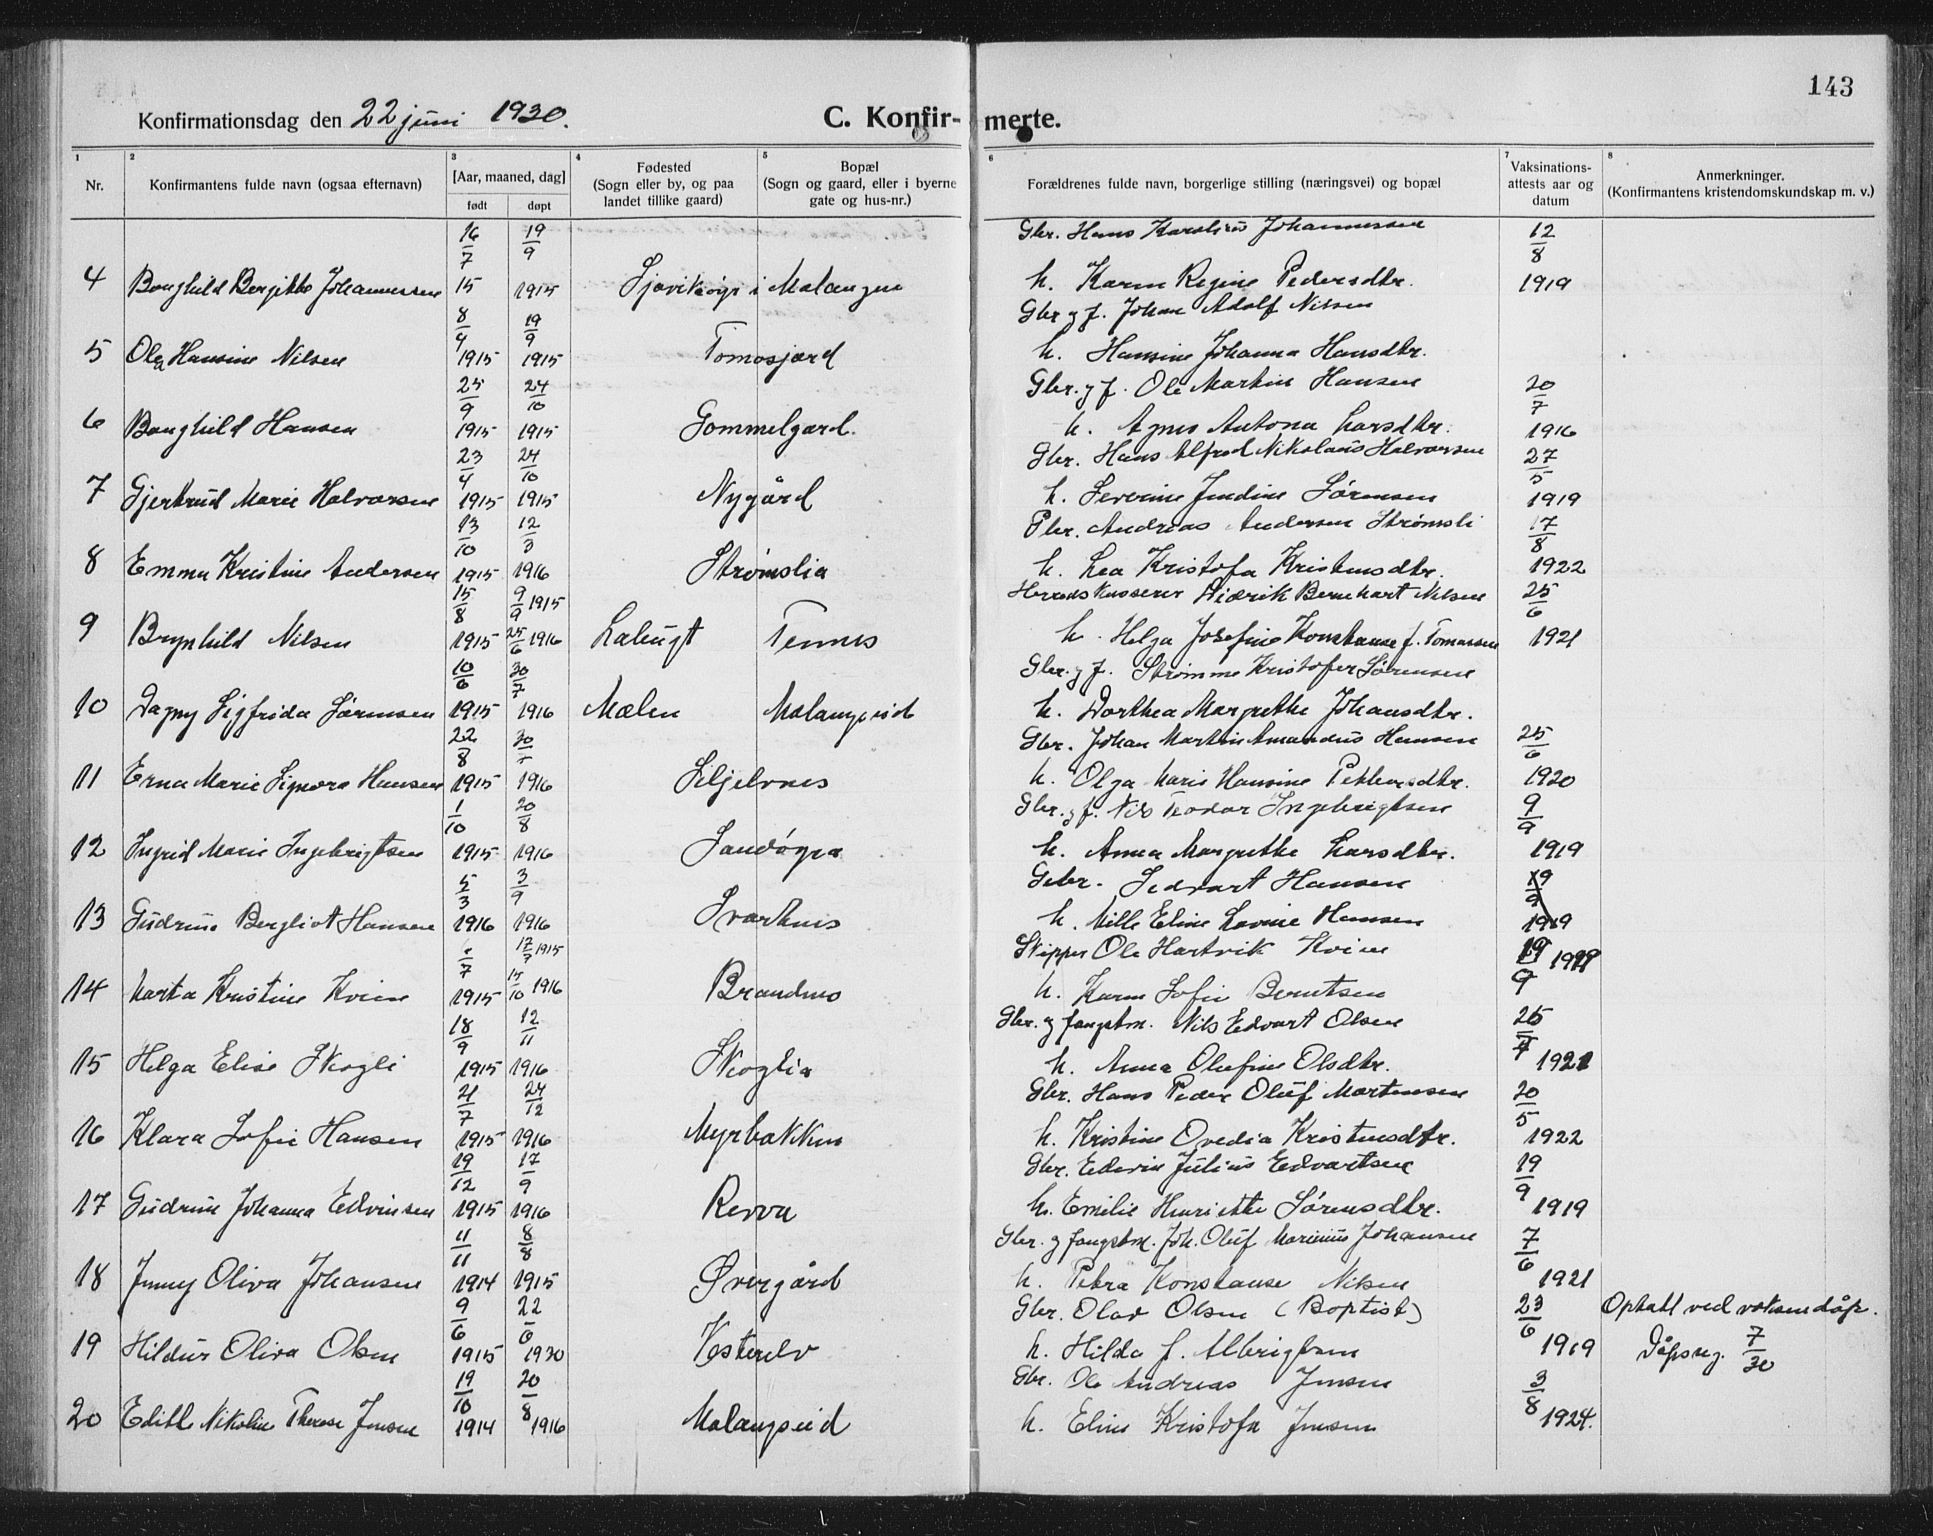 143
Konfirmationsdag den 22 juni 1930.
C. Konfir- merte.
1 2 3 4 5 6 7 8
Nr.
Konfirmantens fulde navn (ogsaa efternavn)
[Aar, maaned, dag]
født døpt
Fødested
(Sogn eller by, og paa
landet tillike gaard)
Bopæl
(Sogn og gaard, eller i byerne
gate og hus-nr.)
Forældrenes fulde navn, borgerlige stilling (næringsvei) og bopæl
Vaksinations-
attests aar og
datum
Anmerkninger.
(Konfirmantens kristendomskundskap m. v.)
16/7 19/9 Gbr. Hans Johannessen 12/8
4 Borghild Bergitte Johannessen 15 1915 i Malangen h. Karen Regine Pedersdtr. 1919
8/4 19/9 Gbr og f. Johan Adolf Nilsen
5 Olga Hansine Nilsen 1915 1915 Tomasjord h. Hansine Johanna Hansdtr.
25/9 24/10 Gbr. og f. Ole Martin Hansen 20/7
6 Borghild Hansen 1915 1915 Gommelgård h. Agnes Antona Larsdtr. 1916
23/4 24/10 Gbr. Hans Alfred Nikolaus Halvorsen 27/5
7 Gjertrud Marie Halvorsen 1915 1915 Nygård h. Severine Jendine Sørensen 1919
13/10 12/3 Pbr. Andreas Andersen Strømsli 17/8
8 Emma Kristine Andersen 1915 1916 Strømslia h. Lea Kristofa Kristensdtr. 1922
15/8 9/9 1915 Herredskasserer Didrik Bernhart Nilsen 25/6
9 Brynhild Nilsen 1915 25/6 1916 Labugt Tennes h. Helga Josefine Konstanse f. Tomassen 1921
10/6 30/7 Gbr. og f. Strømme Kristofer Sørensen
10 Dagny Sigfrida Sørensen 1915 1916 Mælen Malangseid h. Dorthea Margrethe Johansdtr.
22/8 30/7 Gbr. Johan Martin Amandus Hansen 25/6
11 Erna Marie Signora Hansen 1915 1916 Seljelvnes h. Olga Marie Hansine Pettersdtr. 1920
1/10 20/8 Gbr. og f. Nils Teodor Ingebrigtsen 9/9
12 Ingrid Marie Ingebrigtsen 1915 1916 Sandøyra h. Anna Margrethe Larsdtr. 1919
5/3 3/9 Gbr. Sedvart Hansen 19/9
13 Gudrun Bergliot Hansen 1916 1916 Svartnes h. Mille Eline Lovise Hansen 1919
/7 17/7 1915 Skipper Ole Hartvik Kvien 19/9 1919
14 Marta Kristine Kvien 1915 15/10 1916 Brandmo h. Karen Sofie Berntsen
18/9 12/11 Gbr. og fangstm. Nils Edvart Olsen 25/7
15 Helga Elise Skogli 1915 1916 Skoglia h. Anna Olufine Olsdtr. 1921
21/7 24/12 Gbr. Hans Peder Oluf Martensen 20/5
16 Klara Sofie Hansen 1915 1916 Myrbakken h. Kristine Ovedia Kristensdtr. 1922
19/12 17/9 Gbr. Edvin Julius Edvartsen 19/9
17 Gudrun Johanna Edvinsen 1915 1916 Revva h. Emilie Henriette Sørensdtr. 1919
11/11 8/8 Gbr. og fangstm. Joh. Oluf Marinius Johansen 7/6
18 Jenny Oliva Johansen 1914 1915 Øvergård h. Petra Konstanse Nilsen 1921
9/6 22/6 Gbr. Olav Olsen (Baptist) 23/6 Optatt ved voksendåp.
19 Hildur Oliva Olsen 1915 1930 Vesterelv h. Hilda f. Albrigtsen 1919 Dåpsreg. 7/30
19/10 20/8 Gbr. Ole Andreas Jensen 3/8
20 Edith Nikoline Therese Jensen 1914 1916 Malangseid h. Eline Kristofa Jensen 1924.